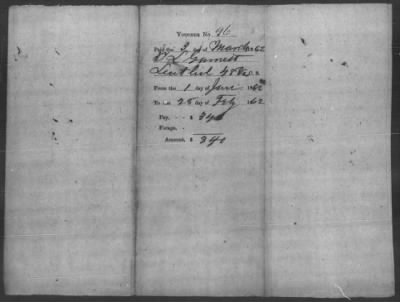 Voucher No. 96
Paid 3 day of March 1862
T. S. Garnett
Lieut Col 48 Va
From the 1 day of Jany 1862
To the 28 day of Feby 1862
Pay, - - $ 340
Forage, -
Amount, $ 340